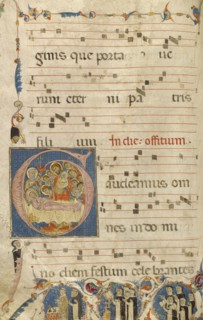 ginis que porta ue
runt eter ni pa tris
fili um. In die. offitium.
Gaudeamus om
nes in do mi
no diem festum cele brantes